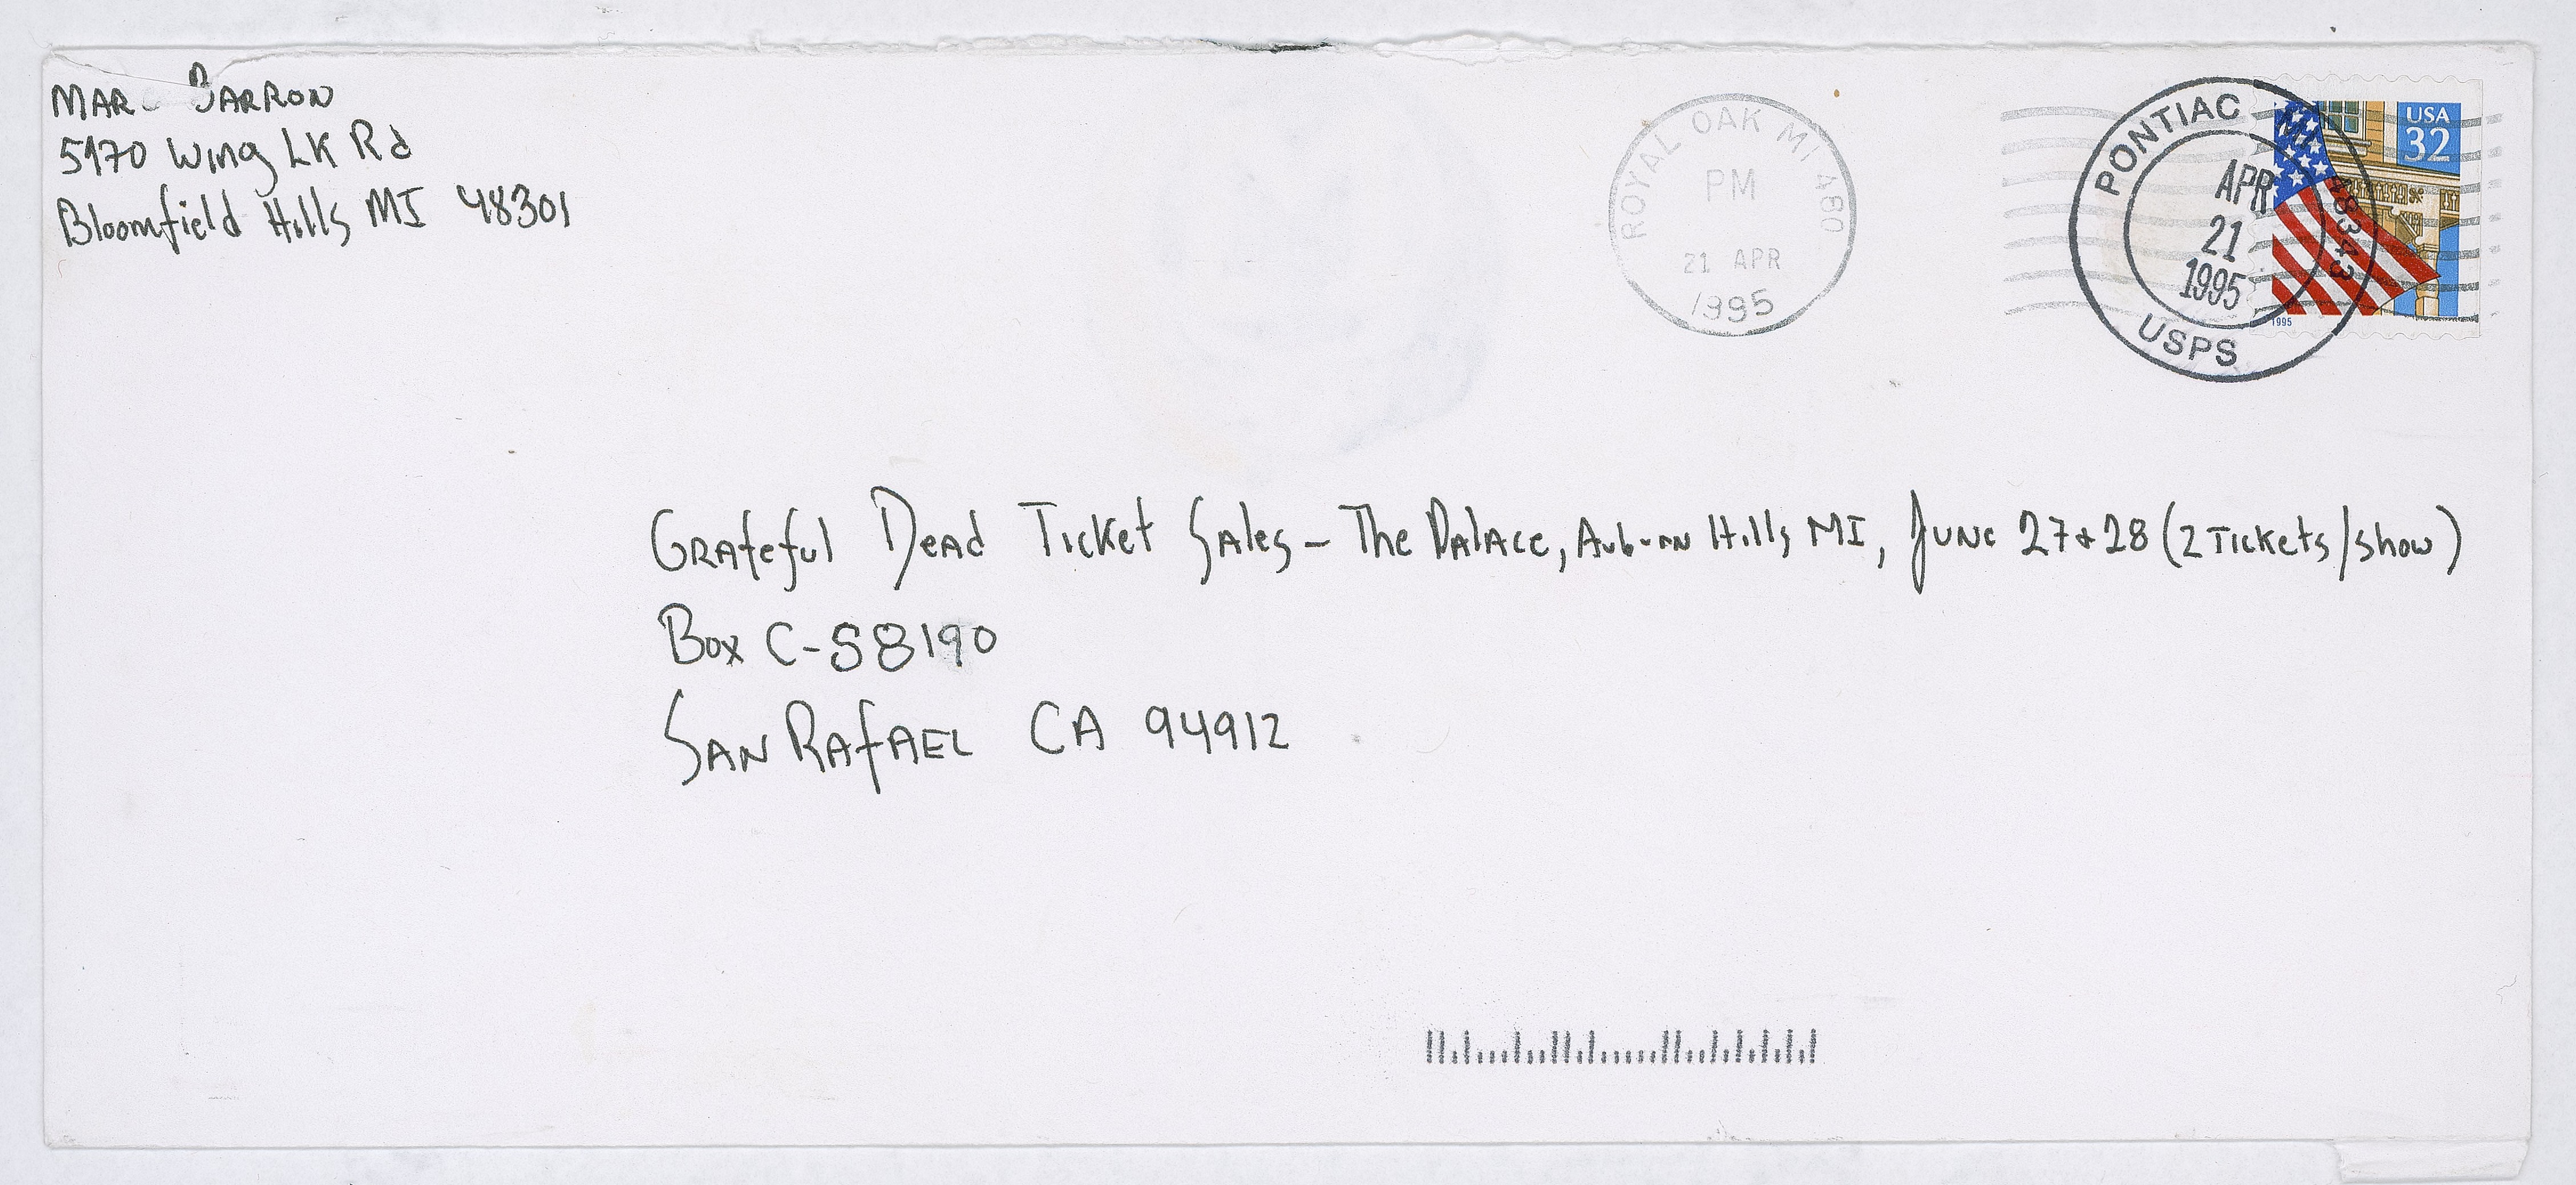 5970 Wing LK Rd
Bloomfield Hills MI 48301
ROYAL OAK MI 480
PM
21 APR
1995
PONTIAC MI 48343
APR
21
1995
USPS
USA
32
1995
Grateful Dead Ticket Sales - The Palace, Auburn Hills MI, June 27 & 28 (2 Tickets/show)
Box C-S8190
San Rafael CA 94912